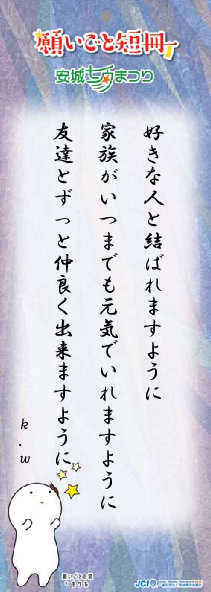 願いごと短冊
安城七夕まつり
好きな人と結ばれますように
家族がいつまでも元気でいれますように
友達とずっと仲良く出来ますように
k.w
JCI